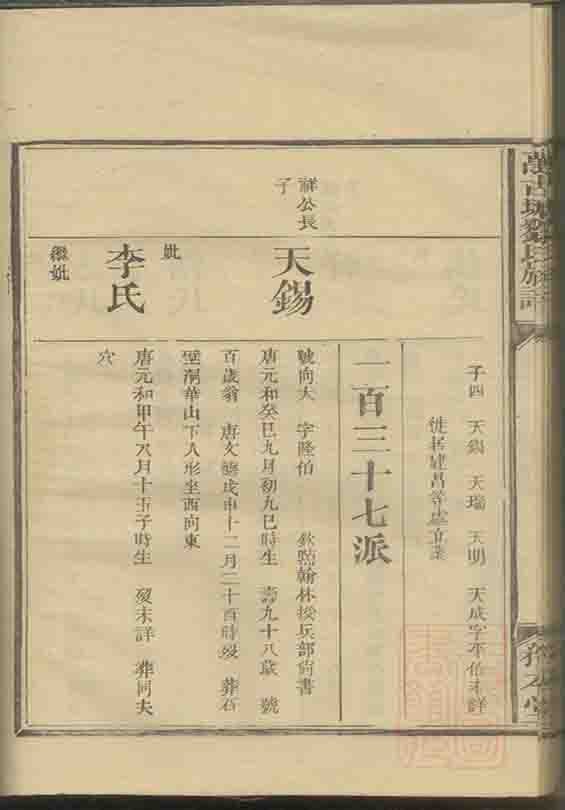 子四　天錫　天瑞　天明　天成字平伯未詳
徙居建昌等處立業
一百三十七派
祥公長
子
天錫
號向大　字隆伯　欽點翰林授兵部尚書
唐元和癸巳九月初九巳時生　壽九十八歲　號
百歲翁　唐文德戊申十二月二十酉時歿　葬石
壁洞華山下人形坐西向東
妣
李氏
唐元和甲午八月十五子時生　歿未詳　葬同夫
穴
繼妣
氏族譜